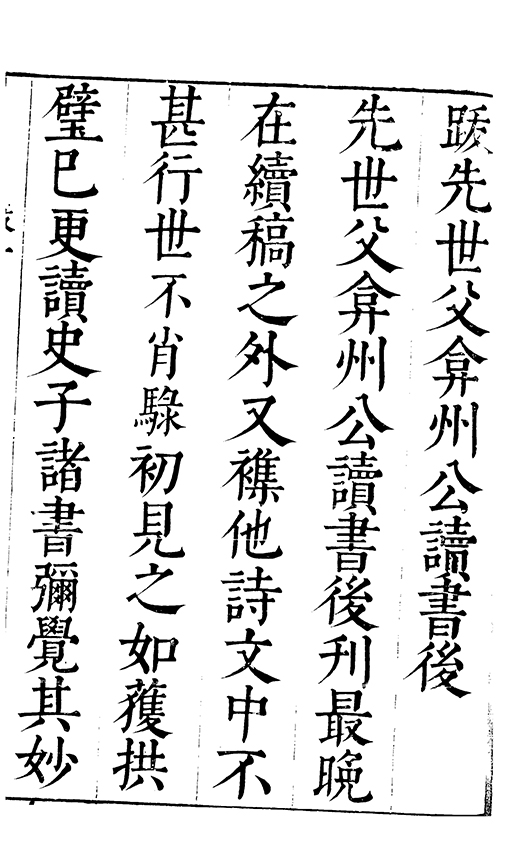 跋先世父弇州公讀書後
先世父弇州公讀書後刊最晚
在續稿之外又襍他詩文中不
甚行世不肖騄初見之如獲拱
璧已更讀史子諸書彌覺其妙